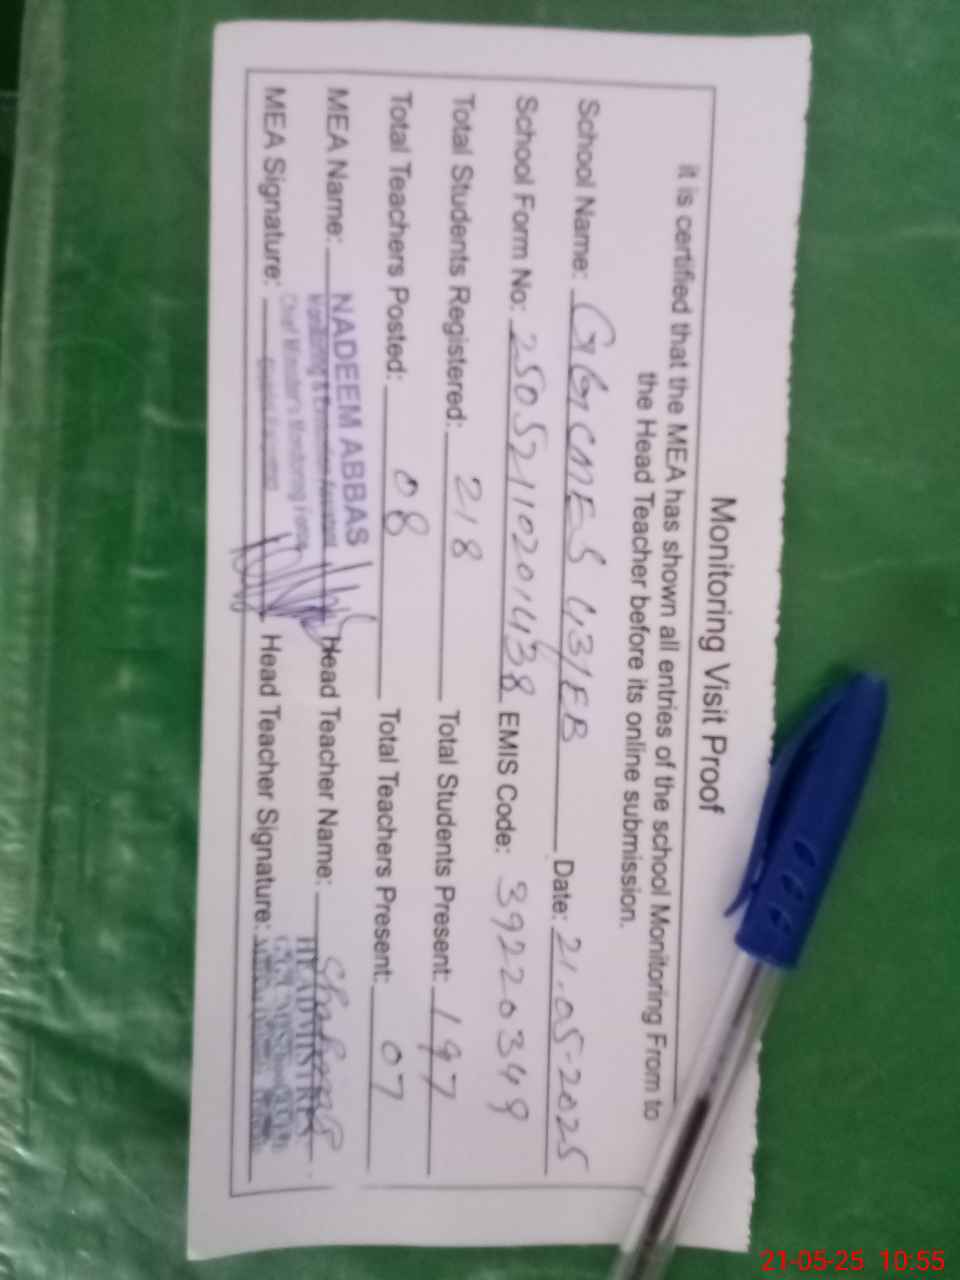 Monitoring Visit Proof
it is certified that the MEA has shown all entries of the school Monitoring From to
the Head Teacher before its online submission.
School Name: GGCMES 431EB Date: 21-05-2025
School Form No: 25052110201438 EMIS Code: 39220349
Total Students Registered: 218 Total Students Present: 197
Total Teachers Posted: 08 Total Teachers Present: 07
MEA Name: NADEEM ABBAS Head Teacher Name:
Monitoring & Evaluation Assistant
Chief Minister's Monitoring Force
HEADMISTRESS
MEA Signature: Head Teacher Signature:
21-05-25 10:55